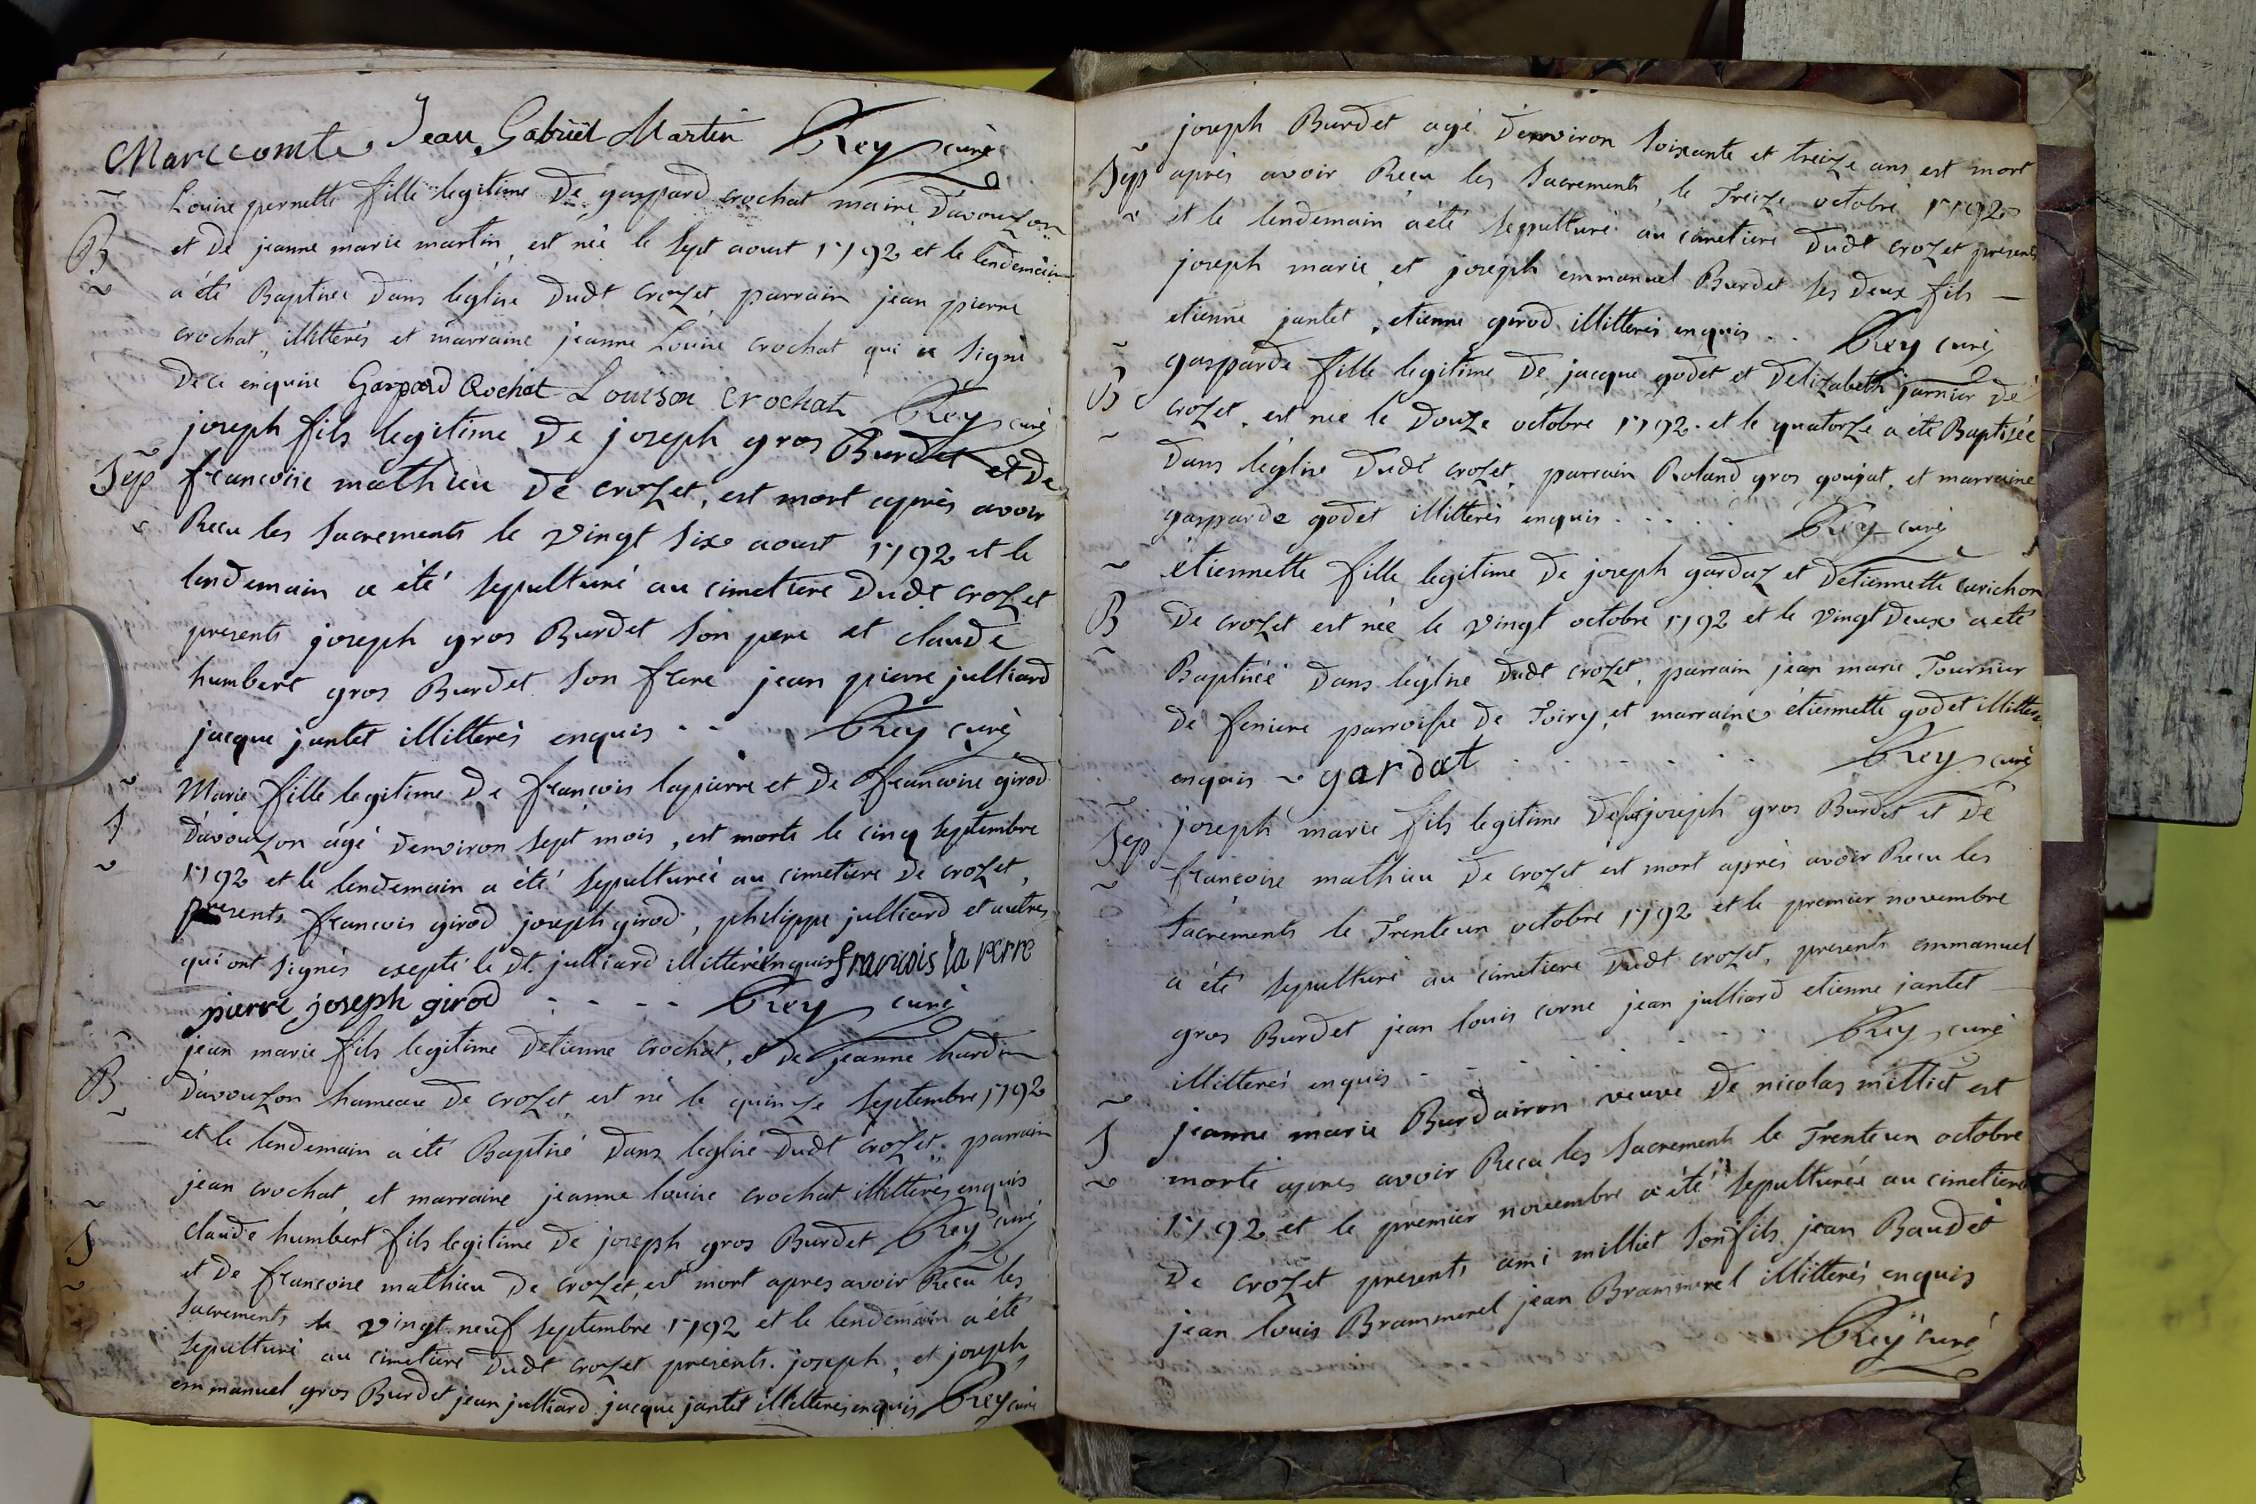 Marccomte Jean Gabriel Martin Rey curé
Louise pernette fille legitime de gaspard crochat maire d'avouzon
B et de jeanne marie martin, est née le sept aoust 1792 et le lendemain
a été Baptisée dans leglise dudt crozet parrain jean pierre
crochat, illitterés et marraine jeanne Louise crochat qui a signé
de ce enquise Gaspard Crochat Louison crochat Rey curé
joseph fils legitime de joseph gros Burdet et de
Sep francoise mathieu de crozet, est mort après avoir
Recu les sacrements le vingt six aoust 1792 et le
lendemain a été sepulturé au cimetiere dudt crozet
presents joseph gros Burdet son pere et claude
humbert gros Burdet son frere jean pierre julliard
jacque jantet illitterés enquis - - Rey curé
Marie fille legitime de francois lapierre et de francoise girod
S d'avouzon agé denviron sept mois, est morte le cinq septembre
1792 et le lendemain a été sepulturée au cimetiere de crozet,
presents francois girod joseph girod, philippe julliard et autres
qui ont signés exepté le dt julliard illitteré enquis francois la perre
pierre joseph girod - - - - Rey curé
jean marie fils legitime detienne crochat, et de jeanne hardin
B d'avouzon hameau de crozet est né le quinze septembre 1792
et le lendemain a été Baptisé dans leglise dudt crozet, parrain
jean crochat, et marraine jeanne louise crochat illitterés enquis
S claude humbert fils legitime de joseph gros Burdet Rey curé
et de francoise mathieu de crozet, est mort apres avoir Recu les
sacrements le vingt neuf septembre 1792 et le lendemain a été
sepulturé au cimetiere dudt crozet presents joseph, et joseph
emmanuel gros Burdet jean julliard jacque jantet illitterés enquis Rey curé
joseph Burdet agé denviron soixante et treize ans est mort
Sep après avoir Recu les sacrements, le treize octobre 1792
et le lendemain a été sepulturé au cimetiere dudt crozet presents
joseph marie et joseph emmanuel Burdet ses deux fils —
etienne jantet, etienne girod illitterés enquis - - Rey curé
gasparde fille legitime de jacque godet et delizabeth jarnier de
B crozet, est née le douze octobre 1792 et le quatorze a été Baptisée
dans léglise dudt crozet, parrain Roland gros goujat, et marraine
gasparde godet illitterés enquis - - - - - Rey curé
etiennette fille legitime de joseph gardaz et detiennette carichon
B de crozet est née le vingt octobre 1792 et le vingt deux a été
Baptisée dans léglise dudt crozet, parrain jean marie Tournier
de feniere parroisse de Toiry, et marraine étiennette godet illitterés
enquis ~ gardat - - - - - Rey curé
joseph marie fils legitime defeu joseph gros Burdet et de
Sep francoise mathieu de crozet est mort après avoir Recu les
sacrements le trente un octobre 1792 et le premier novembre
a été sepulturé au cimetiere dudt crozet, presents emmanuel
gros Burdet jean louis corne jean julliard etienne jantet —
illitterés enquis - - - - - - Rey curé
jeanne marie Burdairon veuve de nicolas milliet est
S morte apres avoir Recu les sacrements le trente un octobre
1792 et le premier novembre a été sepulturée au cimetiere
de crozet presents ami milliet son fils jean Baudet
jean louis Brammerel jean Brammerel illitterés enquis
Rey curé